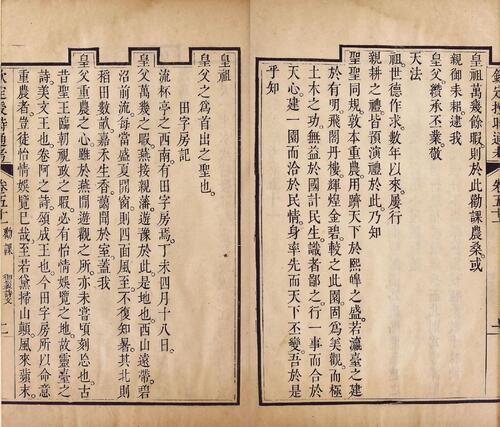 欽定授時通考 卷五十一
皇祖萬幾餘暇則於此勸課農桑或
親御耒耜逮我
皇父纘承丕業敬
天法
祖世德作求數年以來屢行
親耕之禮皆預演禮於此乃知
聖聖同規敦本重農用躋天下於熙皞之盛若瀛臺之建
於有明飛閣丹樓輝煌金碧較之此園固為美觀而極
土木之功無益於國計民生識者鄙之行一事而合於
天心建一園而洽於民情身率先而天下丕變吾於是
乎知
皇祖
皇父之為首出之聖也
田字房記
流杯亭之西南有田字房焉丁未四月十八日
皇父萬幾之暇燕接親藩遊豫於此是地也西山遠帶碧
沼前流每當盛夏開窗則四面風至不復知暑其北則
稻田數畝嘉禾生香蔼聞於室蓋我
皇父重農之心雖於燕閒遊觀之所亦未嘗頃刻忘也古
昔聖王臨朝視政之暇必有怡情娛覽之地故靈臺之
詩美文王也卷阿之詩頌成王也今田字房所以命意
重農者豈徒怡情娛覽已哉至若黛掃山顛風來蘋末
欽定授時通考 卷五十一 勸課 二